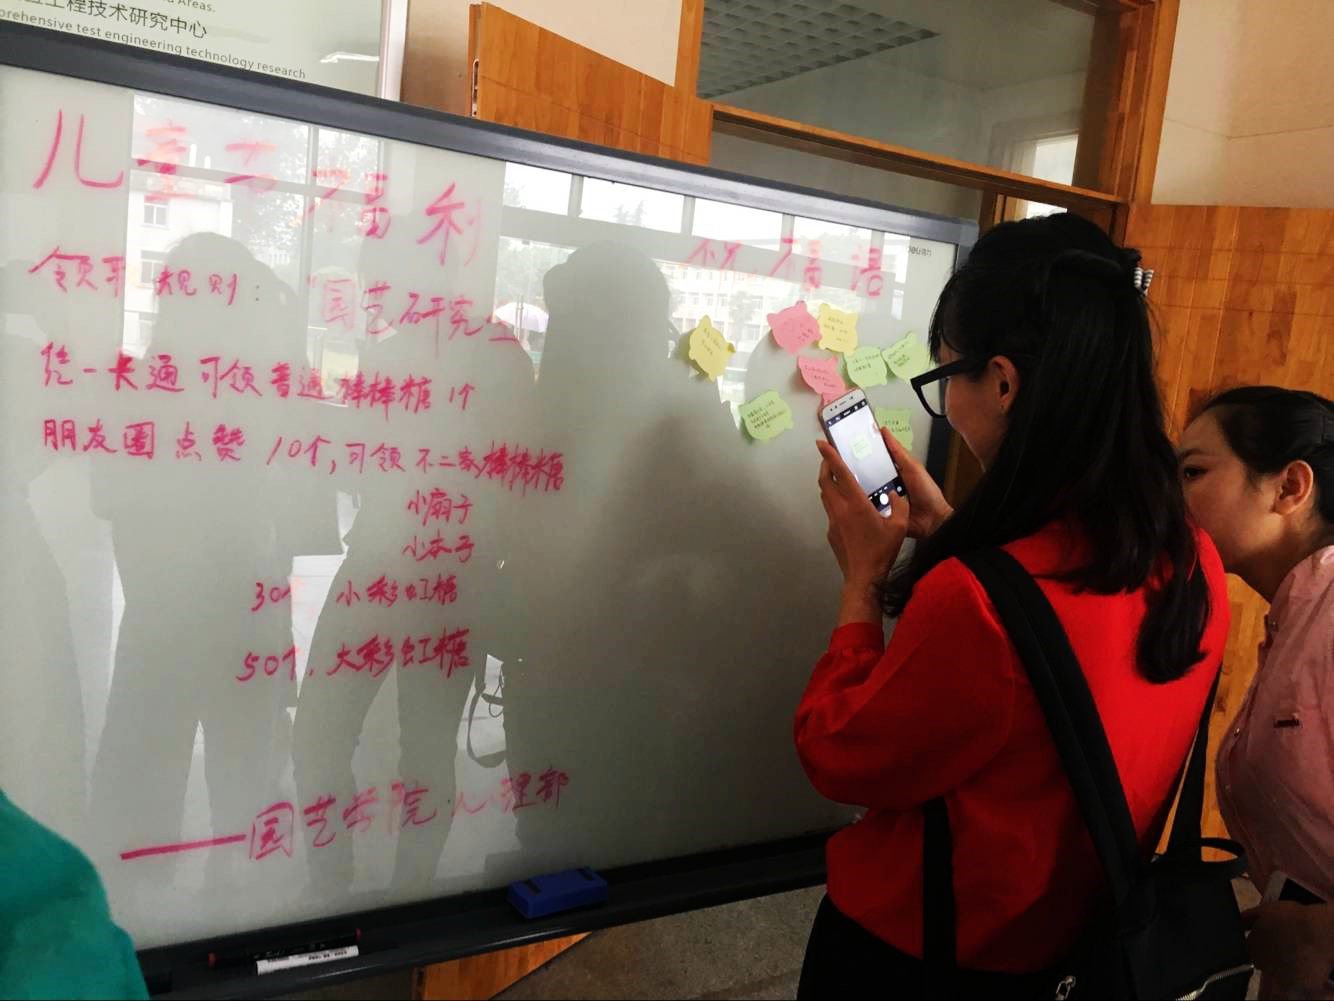 Areas.
工程技术研究中心
prehensive test engineering technology research
儿童节福利
祝福语
领取规则：园艺研究生
凭一卡通可领普通棒棒糖1个
朋友圈点赞10个，可领不二家棒棒糖
小扇子
小本子
30个 小彩虹糖
50个，大彩虹糖
——园艺学院心理部